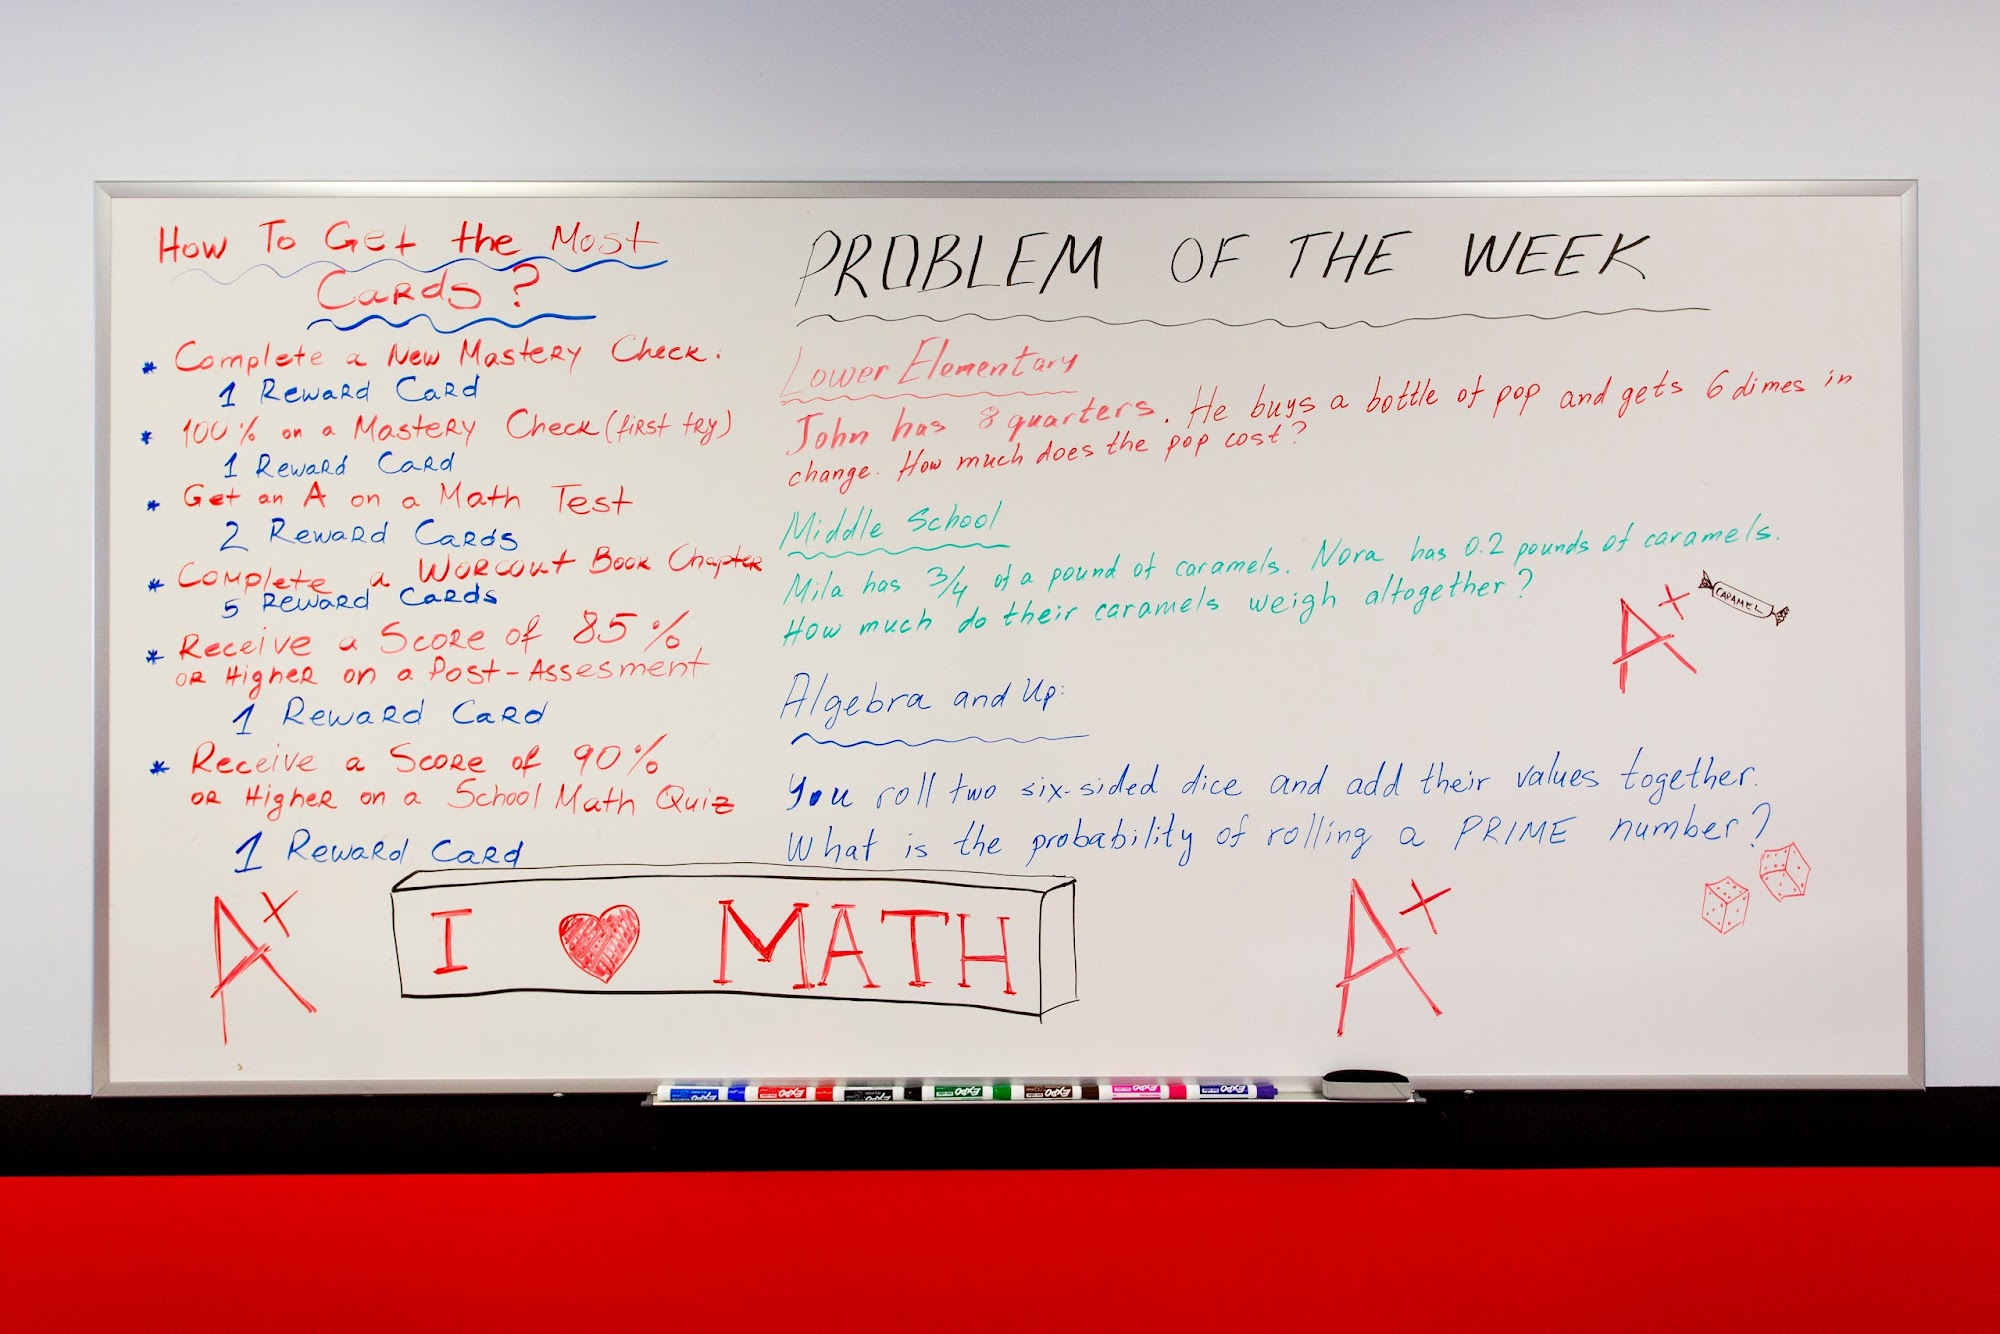 How To Get the Most
Cards?
* Complete a New Mastery Check.
1 Reward Card
* 100% on a Mastery Check (first try)
1 Reward Card
* Get an A on a Math Test
2 Reward Cards
* Complete a Workout Book Chapter
5 Reward Cards
* Receive a Score of 85%
or Higher on a Post-Assesment
1 Reward Card
* Receive a Score of 90%
or Higher on a School Math Quiz
1 Reward Card
A+
I ♥ MATH
PROBLEM OF THE WEEK
Lower Elementary
John has 8 quarters. He buys a bottle of pop and gets 6 dimes in
change. How much does the pop cost?
Middle School
Mila has 3/4 of a pound of caramels. Nora has 0.2 pounds of caramels.
How much do their caramels weigh altogether?
A+
CARAMEL
Algebra and Up:
You roll two six-sided dice and add their values together.
What is the probability of rolling a PRIME number?
A+
EXPO
EXPO
EXPO
EXPO
EXPO
EXPO
EXPO